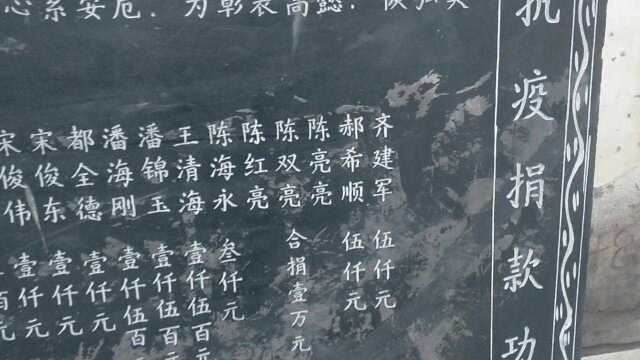 心系安危．为彰表高懿，
抗疫捐款功
齐建军 伍仟元
郝希顺 伍仟元
陈亮亮
陈双亮 合捐壹万元
陈红亮
陈海永 叁仟元
王清海 壹仟伍百元
潘锦玉 壹仟伍百元
潘海刚 壹仟伍百
都全德 壹仟元
宋俊东 壹仟元
宋俊伟 壹仟元
百元